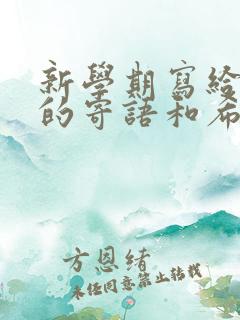 新學期寫給
的寄語和希
方恩緒
未經同意禁止轉載